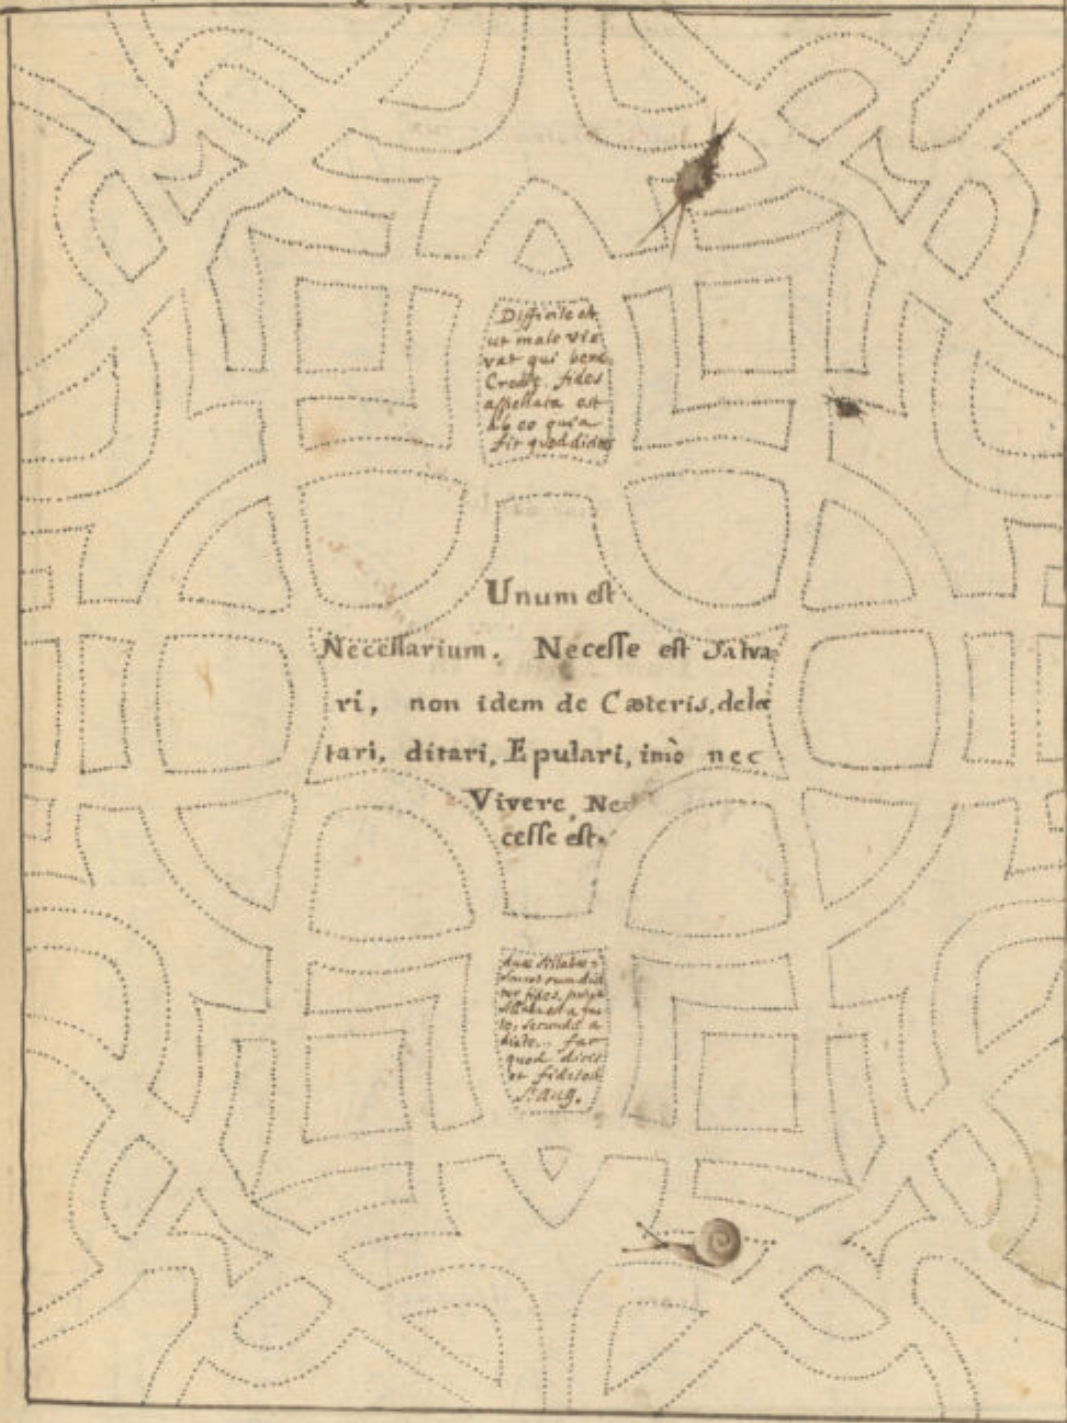 Difficile est
ut male vi⸗
vat qui bene
Credit, fides
appellata est
ab eo quia
fit quod dicitur
Unum est
Necessarium. Necesse est Salva⸗
ri, non idem de Cæteris, delec
tari, ditari, Epulari, imò nec
Vivere Ne⸗
cesse est.
duæ sillabæ
sonant cum dici
tur fides, prima
sillaba est a fac
to, secunda a
dicto. fac
quod dicis
et fides est
S. Aug.